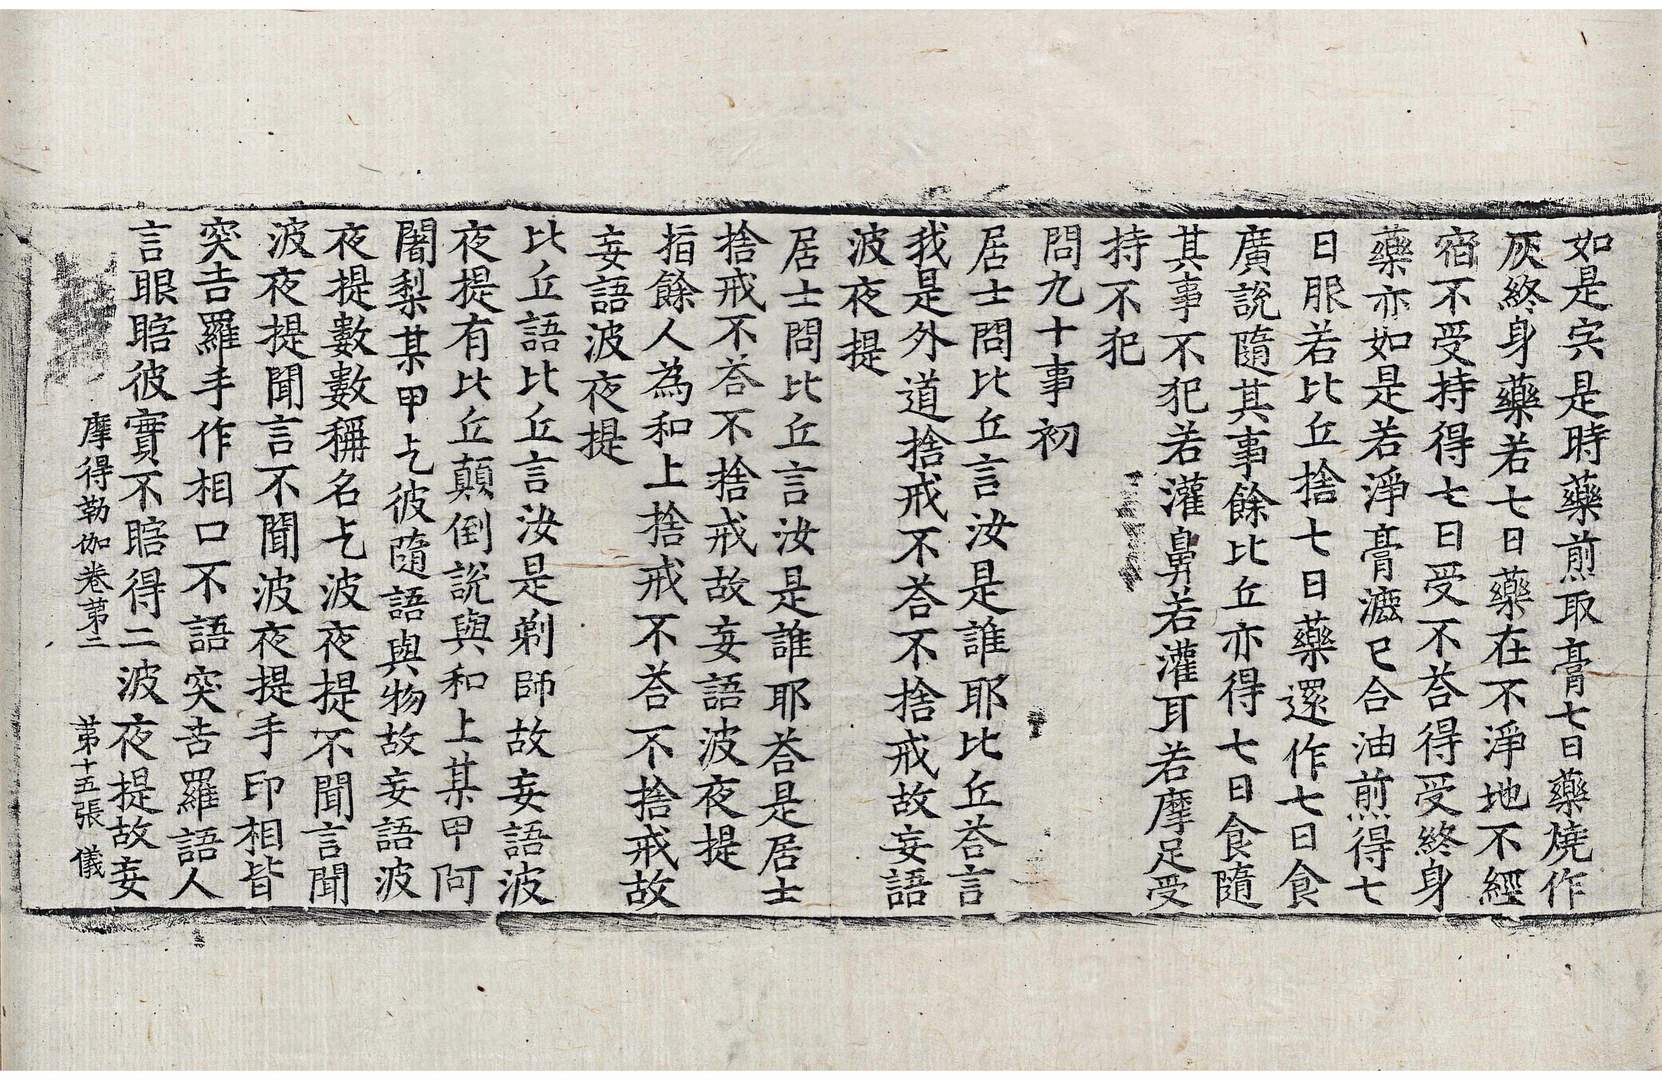 如是宍是時藥煎取膏七日藥燒作
灰終身藥若七日藥在不淨地不經
宿不受持得七日受不荅得受終身
藥亦如是若淨膏漉已合油煎得七
日服若比丘捨七日藥還作七日食
廣說隨其事餘比丘亦得七日食隨
其事不犯若灌鼻若灌耳若摩足受
持不犯
問九十事初
居士問比丘言汝是誰耶比丘荅言
我是外道捨戒不荅不捨戒故妄語
波夜提
居士問比丘言汝是誰耶荅是居士
捨戒不荅不捨戒故妄語波夜提
指餘人為和上捨戒不荅不捨戒故
妄語波夜提
比丘語比丘言汝是剃師故妄語波
夜提有比丘顛倒說與和上某甲阿
闍梨某甲乞彼隨語與物故妄語波
夜提數數稱名乞波夜提不聞言聞
波夜提聞言不聞波夜提手印相皆
突吉羅手作相口不語突吉羅語人
言眼瞎彼實不瞎得二波夜提故妄
摩得勒伽卷第二 第十五張 儀